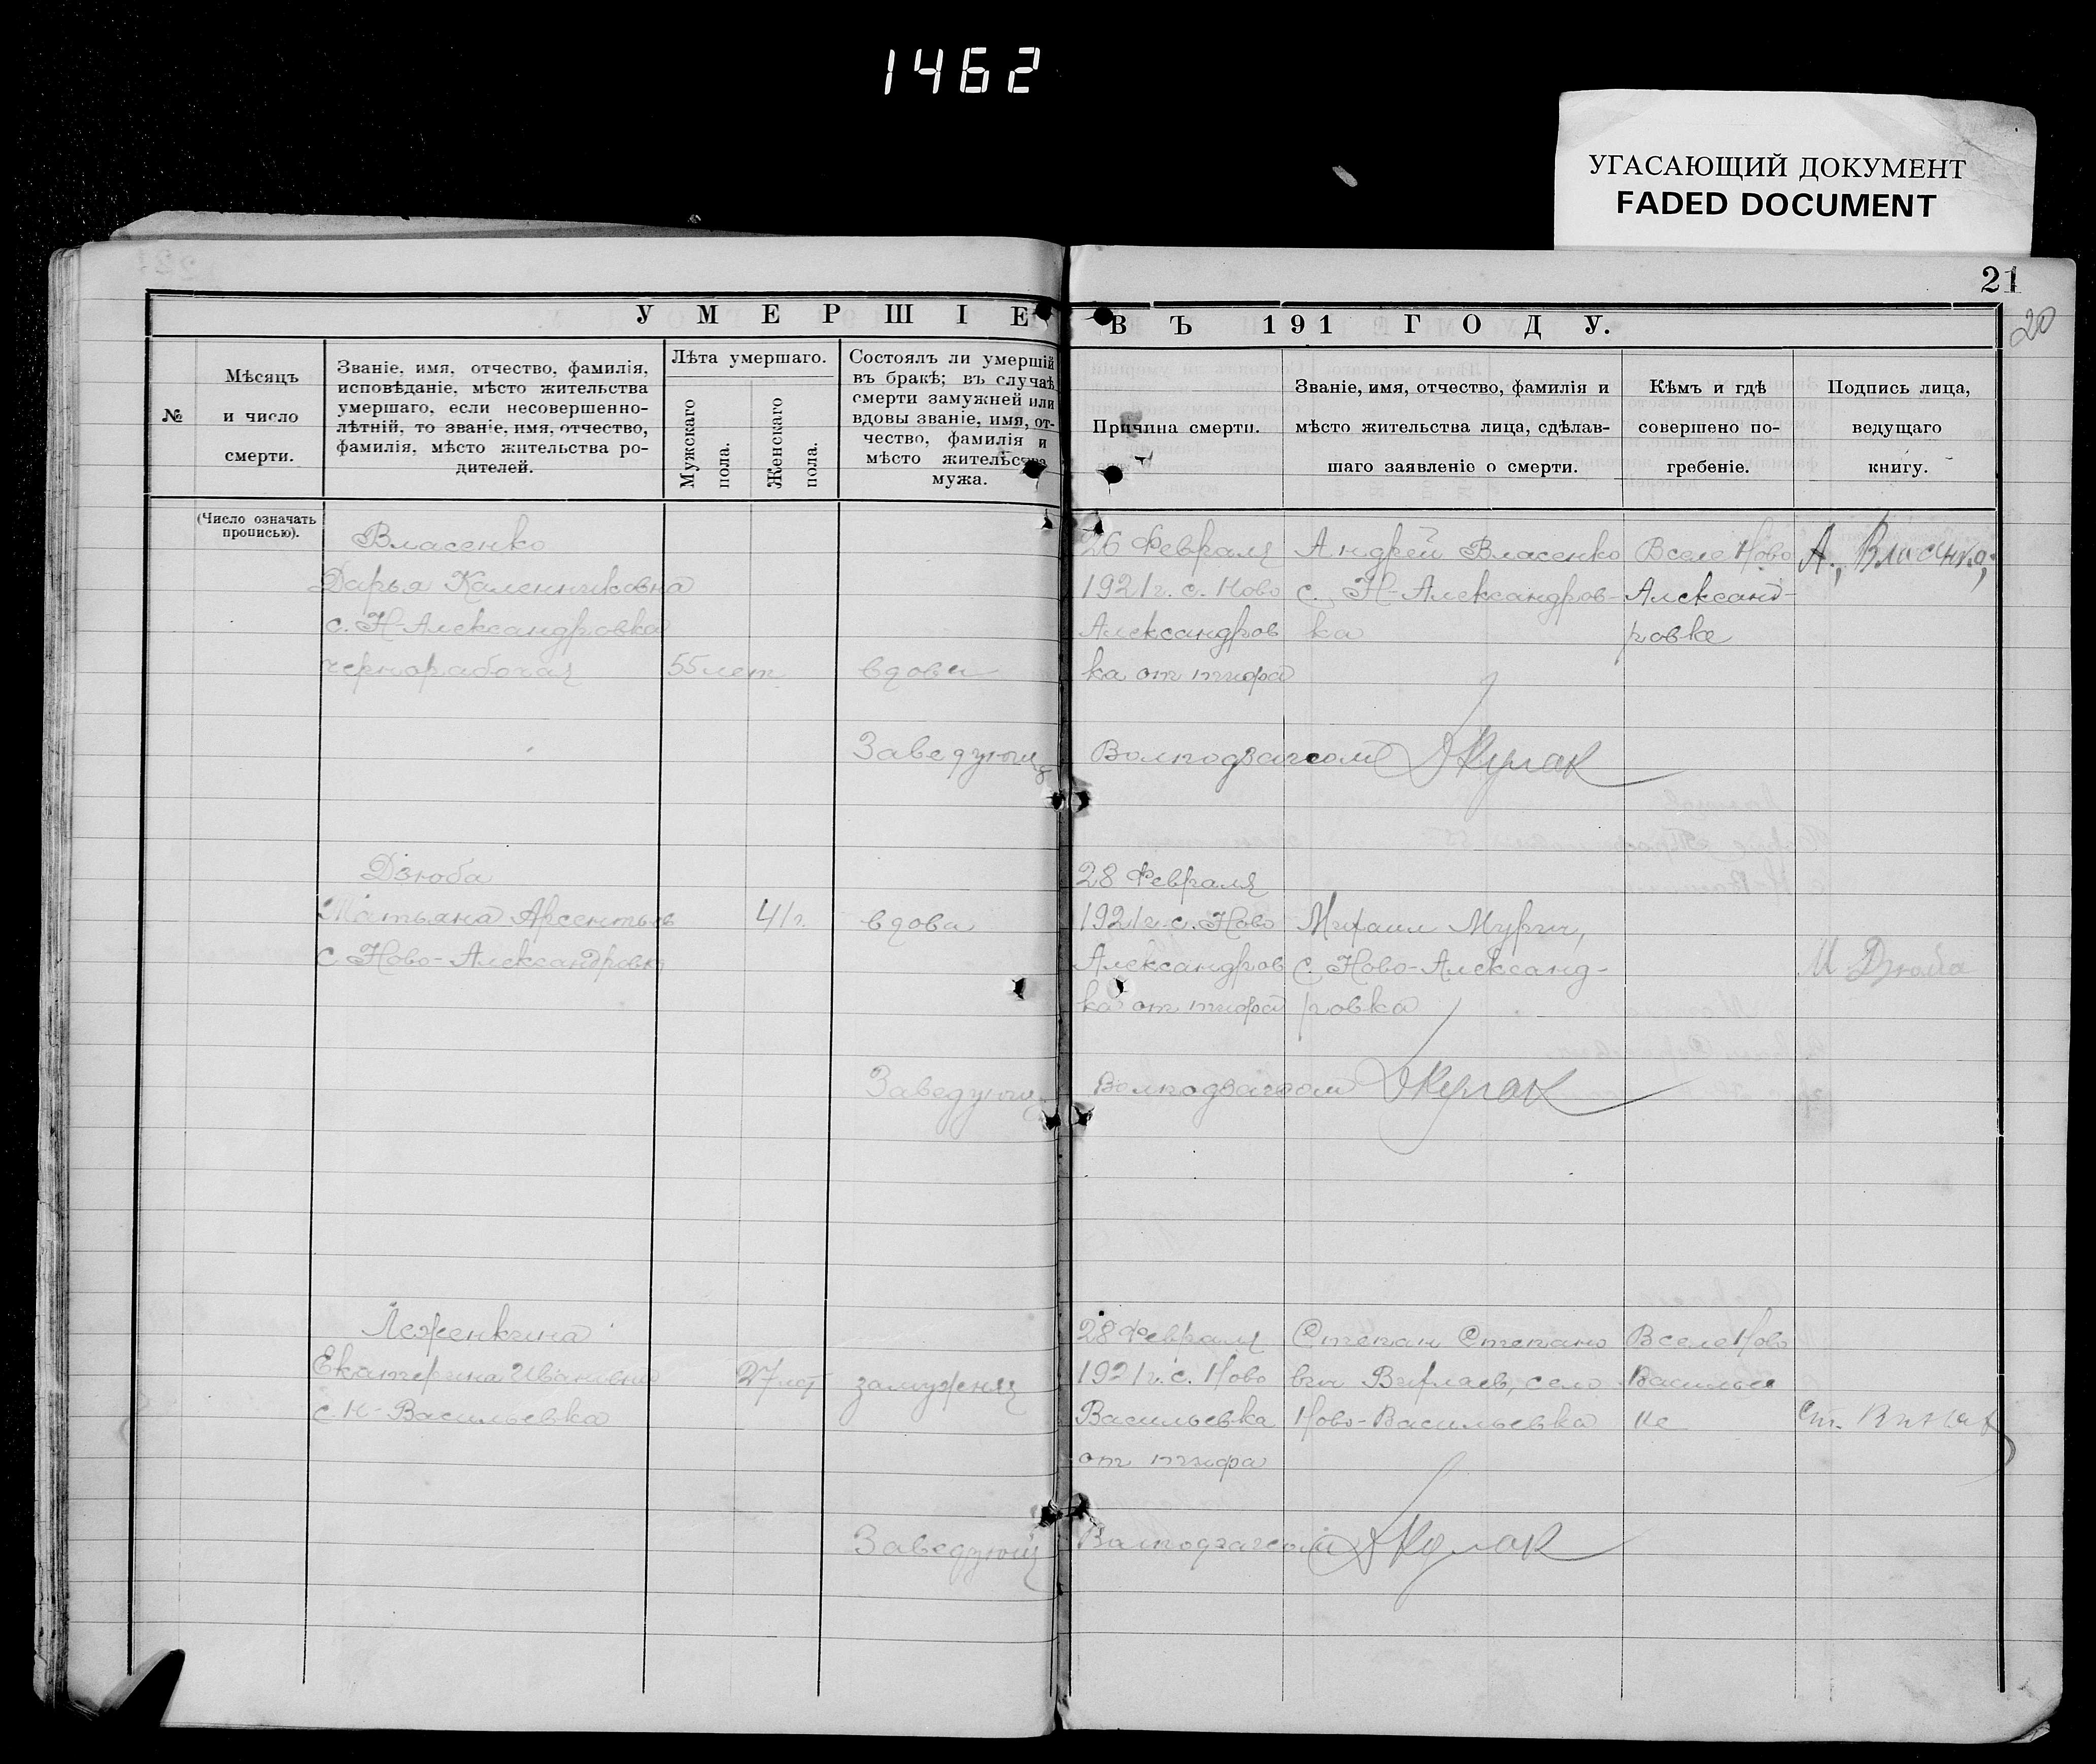 1462
УГАСАЮЩИЙ ДОКУМЕНТ
FADED DOCUMENT
21
20
УМЕРШІЕ ВЪ 191 ГОДУ.
№
Мѣсяцъ
и число
смерти.
Званіе, имя, отчество, фамилія,
исповѣданіе, мѣсто жительства
умершаго, если несовершенно-
лѣтній, то званіе, имя, отчество,
фамилія, мѣсто жительства ро-
дителей.
Лѣта умершаго.
Мужскаго
пола.
Женскаго
пола.
Состоялъ ли умершій
въ бракѣ; въ случаѣ
смерти замужней или
вдовы званіе, имя, от-
чество, фамилія и
мѣсто жительства
мужа.
Причина смерти.
Званіе, имя, отчество, фамилія и
мѣсто жительства лица, сдѣлав-
шаго заявленіе о смерти.
Кѣмъ и гдѣ
совершено по-
гребеніе.
Подпись лица,
ведущаго
книгу.
(Число означать
прописью).
Власенко
Дарья Каленниковна
с. Н-Александровка
чернорабочая
55 лет
вдова
26 Февраля
1921 г. с. Ново
Александров
ка от тифа
Андрей Власенко
с. Н-Александров-
ка
В селе Ново
Александ-
ровке
А. Власенко
Заведующ Волподзагсом Кулак
Дзюба
Татьяна Арсентьев
с. Ново-Александровка
41 г.
вдова
28 Февраля
1921 г. с. Ново
Александров
ка от тифа
Михаил
с. Ново-Александ-
ровка
М Дзюба
Заведующ Волподзагсом Кулак
Леженкина
Екатерина Ивановна
с. Н-Васильевка
27 лет
замужняя
28 Февраля
1921 г. с. Ново
Васильевка
от тифа
Степан Степано
вич село
Ново-Васильевка
В селе Ново
Васильев
ке
Ст.
Заведующ Волподзагсом Кулак